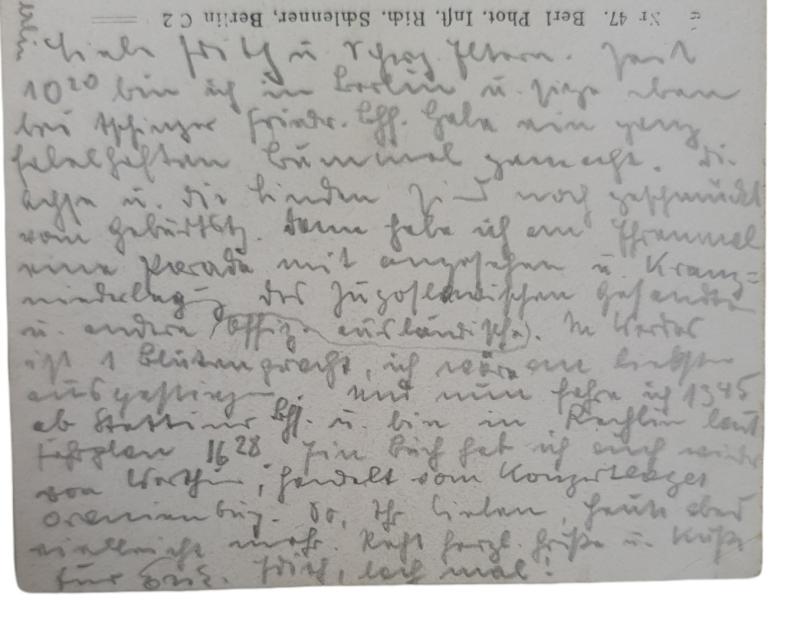 Nr 47. Berl Phot. Inst. Rich. Schlenner, Berlin C 2
Liebe Edith u. Schw. Eltern. Seit
10²⁰ bin ich in Berlin u. sitze eben
bei Aschinger Friedr. Bhf. Habe ein ganz
fabelhaften Bummel gemacht. Die
achse u. die Linden sind noch geschmückt
vom Geburtstg. Dann habe ich am Ehrenmal
eine Parade mit angesehen u. Kranz=
niederlegg des Jugoslawischen Gesandten
u. andere (Offiz. ausländische). In Werder
ist 1 Blütenpracht, ich wäre am liebsten
ausgestiegen. Und nun fahre ich 13⁴⁵
ab Stettiner Bhf. u. bin in Rechlin laut
Fahrplan 16²⁸. Ein Buch hab ich auch wieder
von , handelt vom Konzertlager
Oranienburg. So, Ihr Lieben, heute abend
vielleicht mehr. Recht herzl. Grüße u. Küsse
Euer . Edith, lach mal!